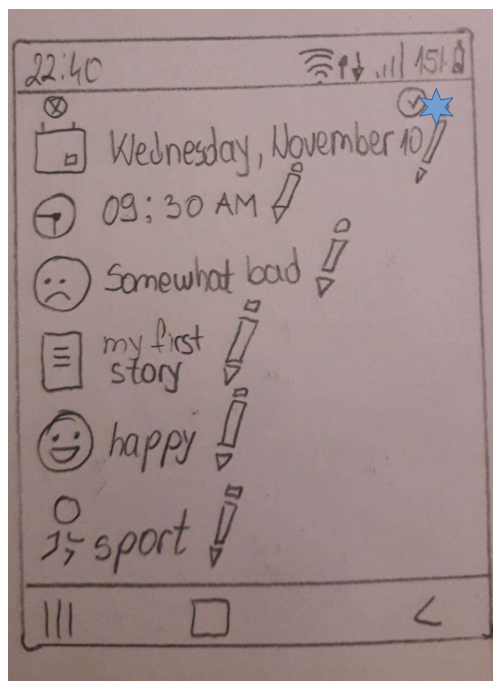 22:40 15%
Wednesday, November 10
09:30 AM
Somewhat bad
my first
story
happy
sport